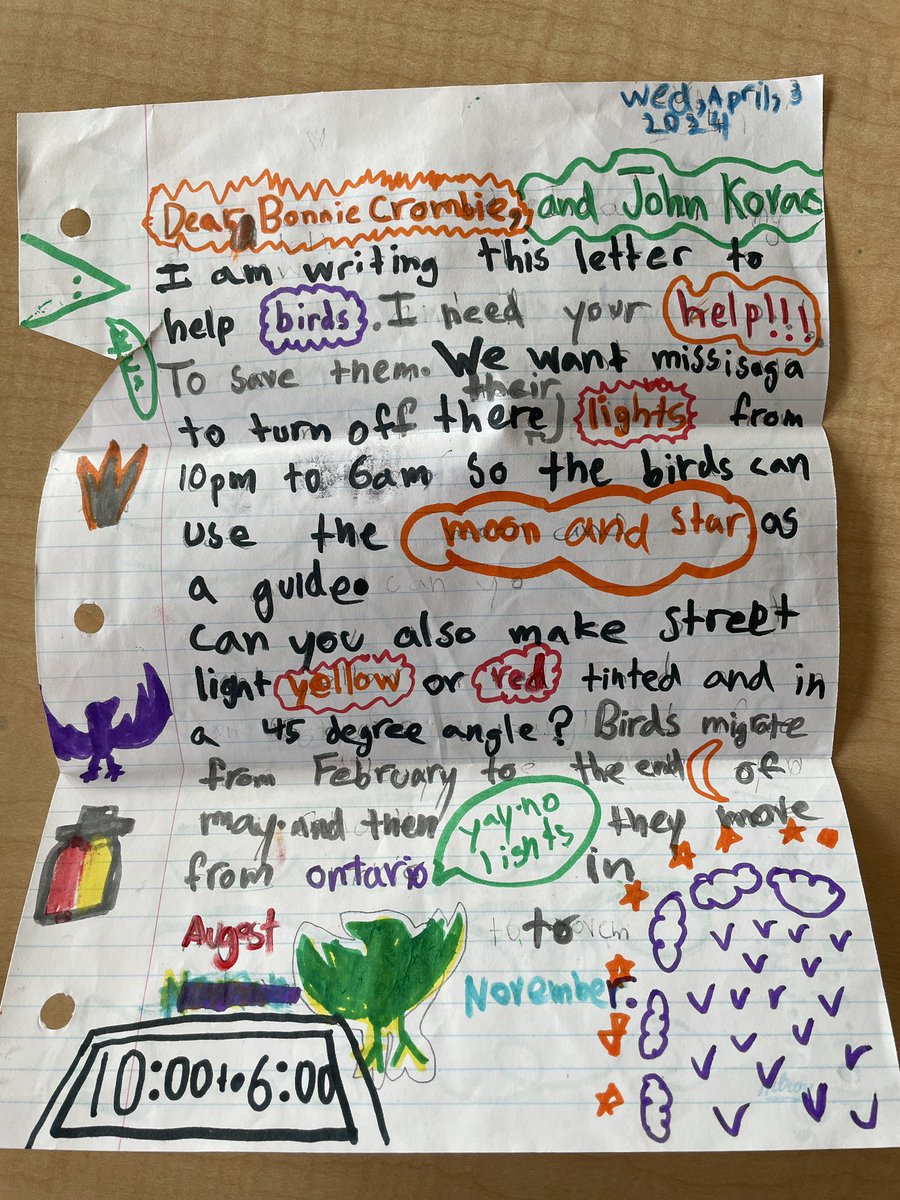 Wed, April, 3
2024
Dear Bonnie Crombie, and John Kovac
I am writing this letter to
help birds. I need your help!!!
To save them. We want missisaga
their
to turn off there lights from
10pm to 6am So the birds can
use the moon and star as
a guide.
Can you also make street
light yellow or red tinted and in
a 45 degree angle? Birds migrate
from February to the end of
may. and then they move
yay no
lights
from ontario in
Augest to
November.
10:00 to 6:00